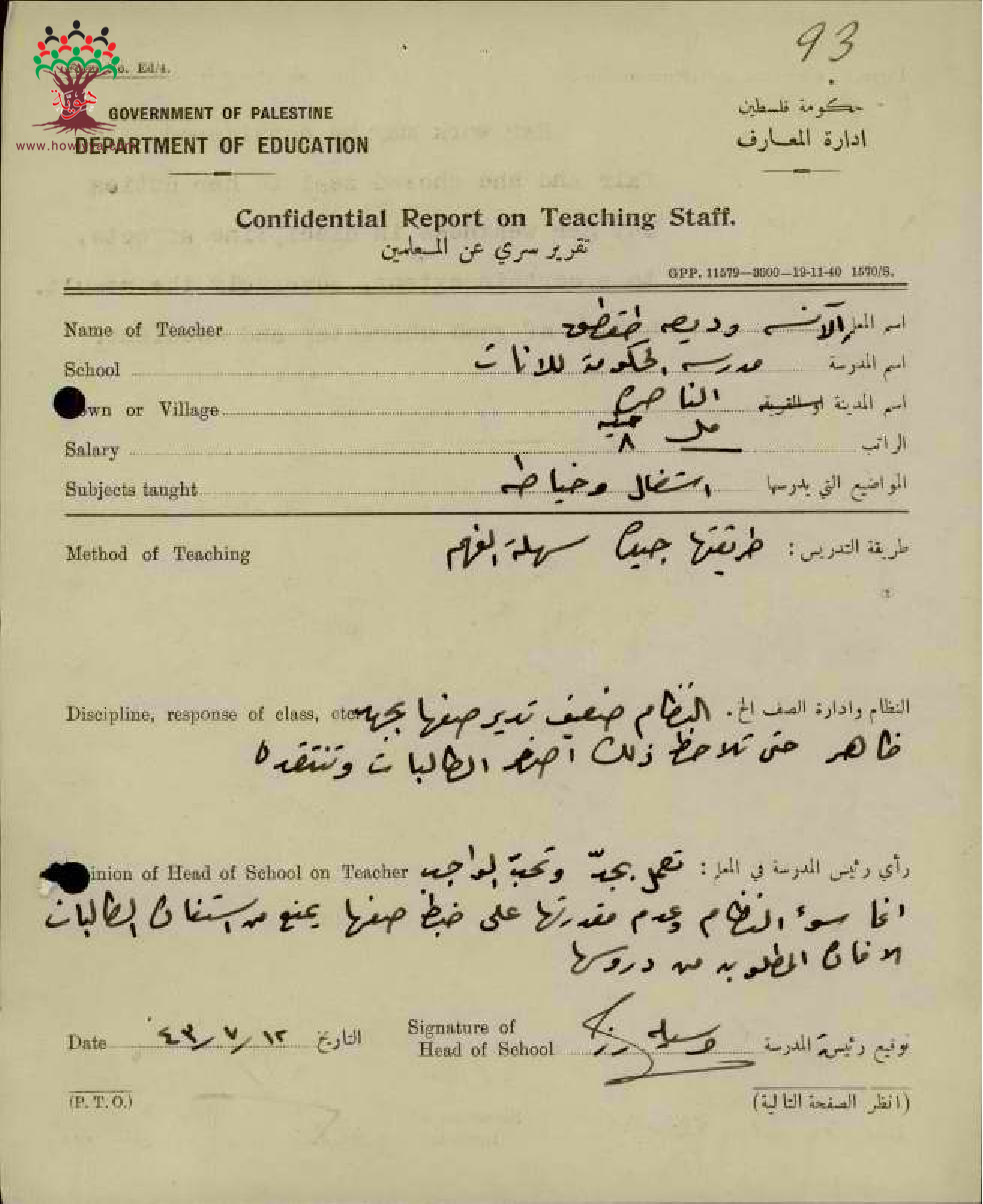 93
Ed/4.
GOVERNMENT OF PALESTINE
حكومة فلسطين
DEPARTMENT OF EDUCATION
ادارة المعارف
www.how
Confidential Report on Teaching Staff.
تقرير سري عن المعلمين
GPP. 11579—3500—19-11-40 1570/S.
Name of Teacher الآنسه وديعه اسم المعلم
School مدرسة الحكومة للاناث اسم المدرسة
own or Village الناصرة اسم المدينة او القرية
Salary ٨ جنيه مل الراتب
Subjects taught اشغال وخياطه المواضيع التي يدرسها
Method of Teaching طريقتها جيدة سهلة الفهم طريقة التدريس :
Discipline, response of class, etc. النظام ضعيف تدير صفها بجهد النظام وادارة الصف الخ .
ظاهر حتى تلاحظ ذلك اصغر الطالبات وتنتقده
inion of Head of School on Teacher تعمل بجدّ وتحبّ الواجب رأي رئيس المدرسة في المعلم :
انما سوء النظام وعدم مقدرتها على ضبط صفها يمنع من استفادة الطالبات
الافادة المطلوبه من دروسها
Date ١٢/٧/٤٣ التاريخ
Signature of
Head of School توقيع رئيسة المدرسة
(P. T. O.)
(انظر الصفحة التالية)